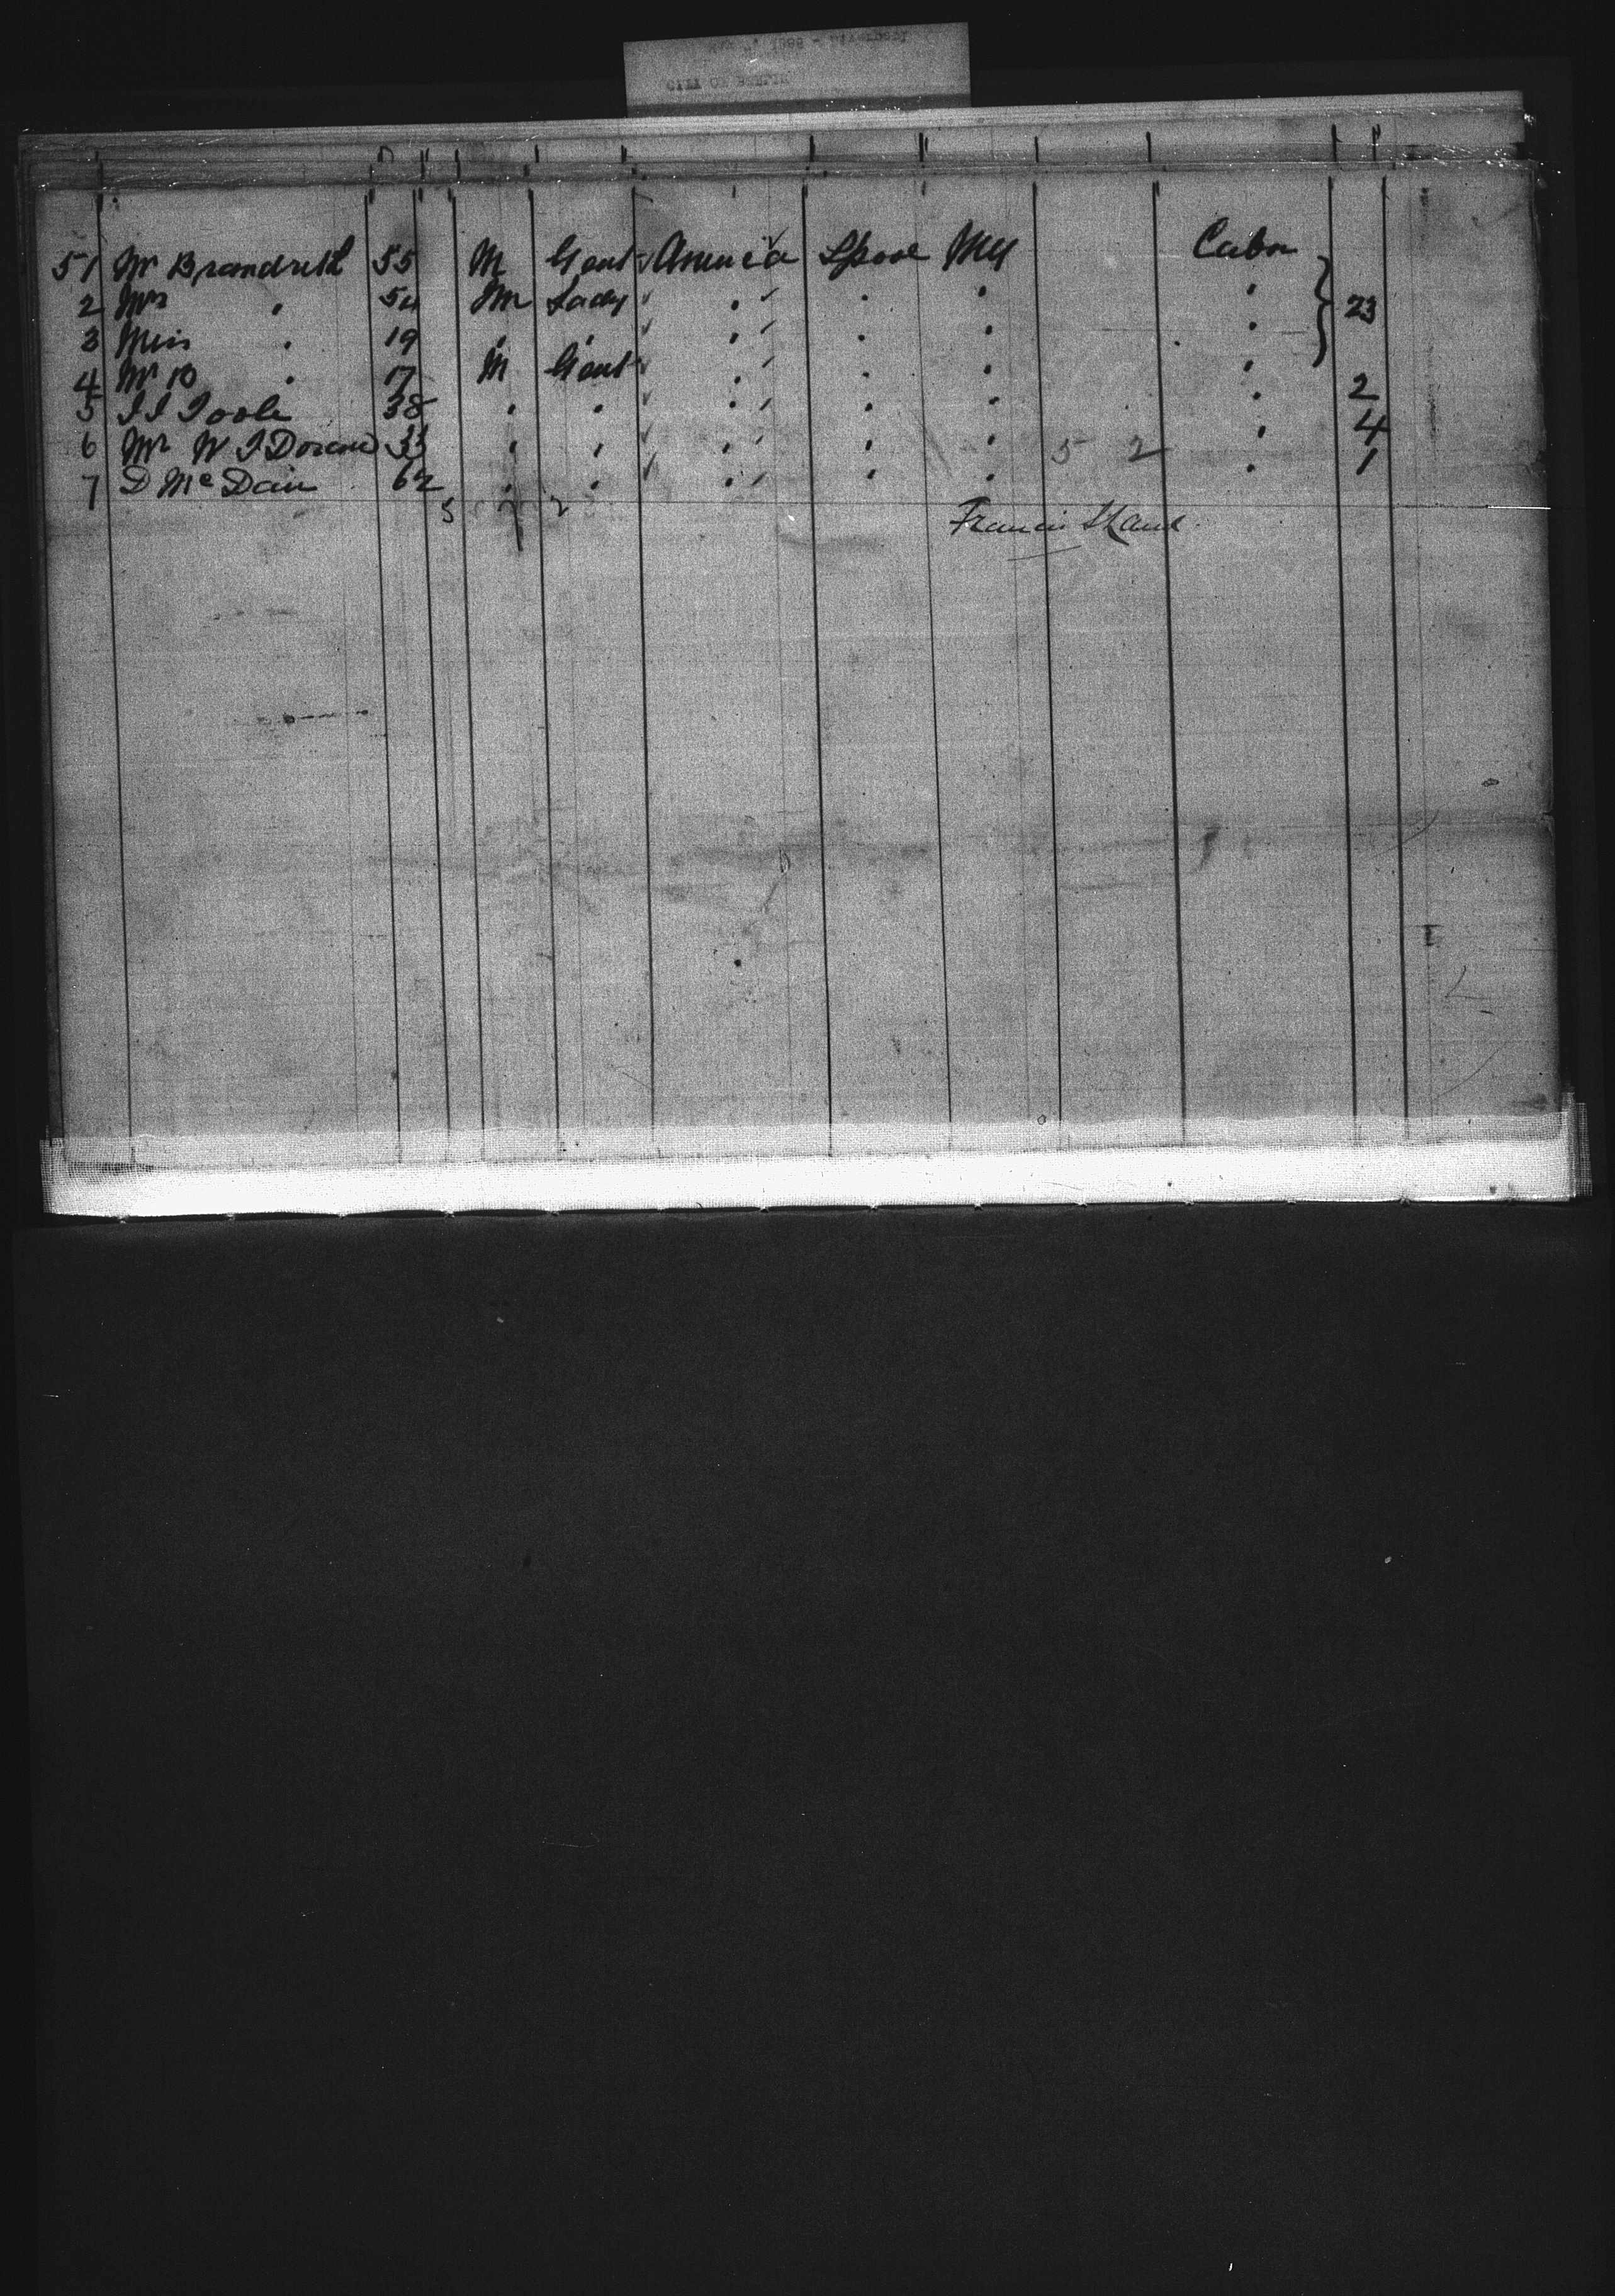 CITY OF BERLIN
51 Mr Brandreth 55 M Gent America Lpool NY Cabin
2 Mrs " 54 M Lady " " " " 23
3 Miss " 19 " " " " " "
4 Mr B " 17 M Gent " " " "
5 J J Poole 38 " " " " " " 2
6 Mr W J Doran 33 " " " " " 5 2 " 4
7 D McDain 62 " " " " " " 1
5 2 2
Francis S Land